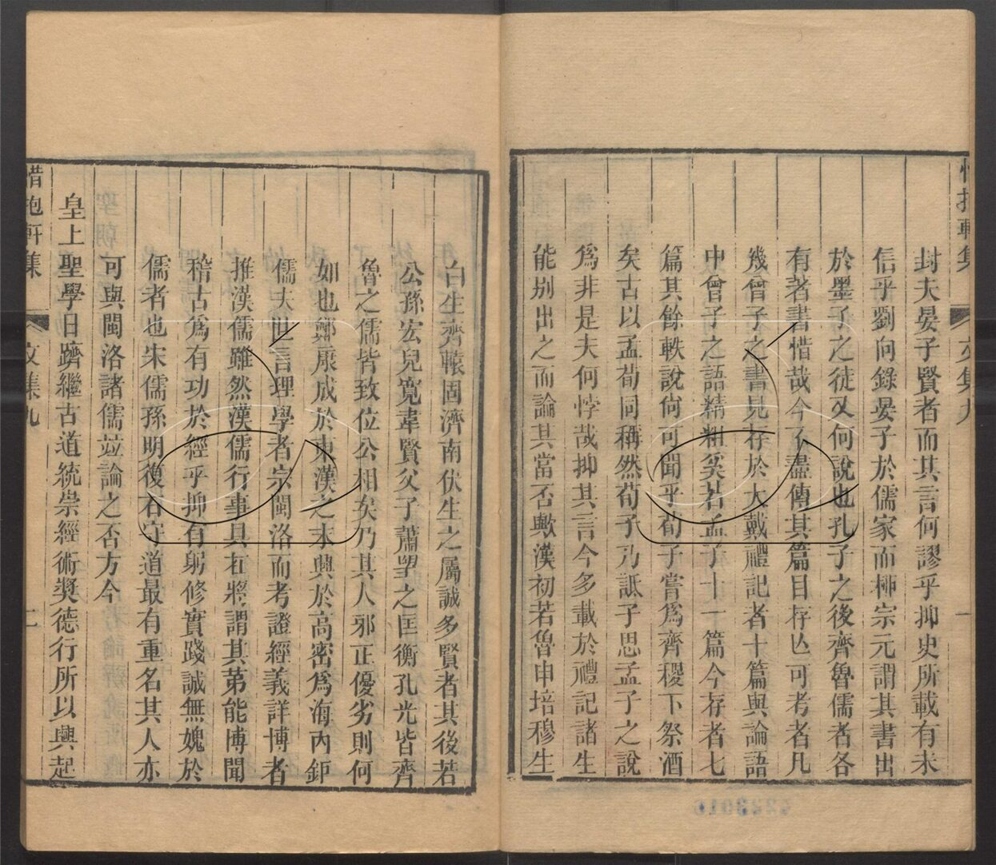 封夫晏子賢者而其言何謬乎抑史所載有未
信乎劉向錄晏子於儒家而柳宗元謂其書出
於墨子之徒又何說也孔子之後齊魯儒者各
有著書惜哉今不盡傳其篇目存亾可考者凡
幾曾子之書見存於大戴禮記者十篇與論語
中曾子之語精粗奚若孟子十一篇今存者七
篇其餘軼說尙可聞乎荀子嘗爲齊稷下祭酒
矣古以孟荀同稱然荀子乃詆子思孟子之說
爲非是夫何悖哉抑其言今多載於禮記諸生
能别出之而論其當否歟漢初若魯申培穆生
惜抱軒集 文集九 一
白生齊轅固濟南伏生之屬誠多賢者其後若
公孫宏兒寬韋賢父子蕭望之匡衡孔光皆齊
魯之儒皆致位公相矣乃其人邪正優劣則何
如也鄭康成於東漢之末興於高密爲海內鉅
儒夫世言理學者宗閩洛而考證經義詳博者
推漢儒雖然漢儒行事具在將謂其第能博聞
稽古爲有功於經乎抑有躬修實踐誠無媿於
儒者也宋儒孫明復石守道最有重名其人亦
可與閩洛諸儒竝論之否方今
皇上聖學日躋繼古道統崇經術奬德行所以興起
惜抱軒集 文集九 二